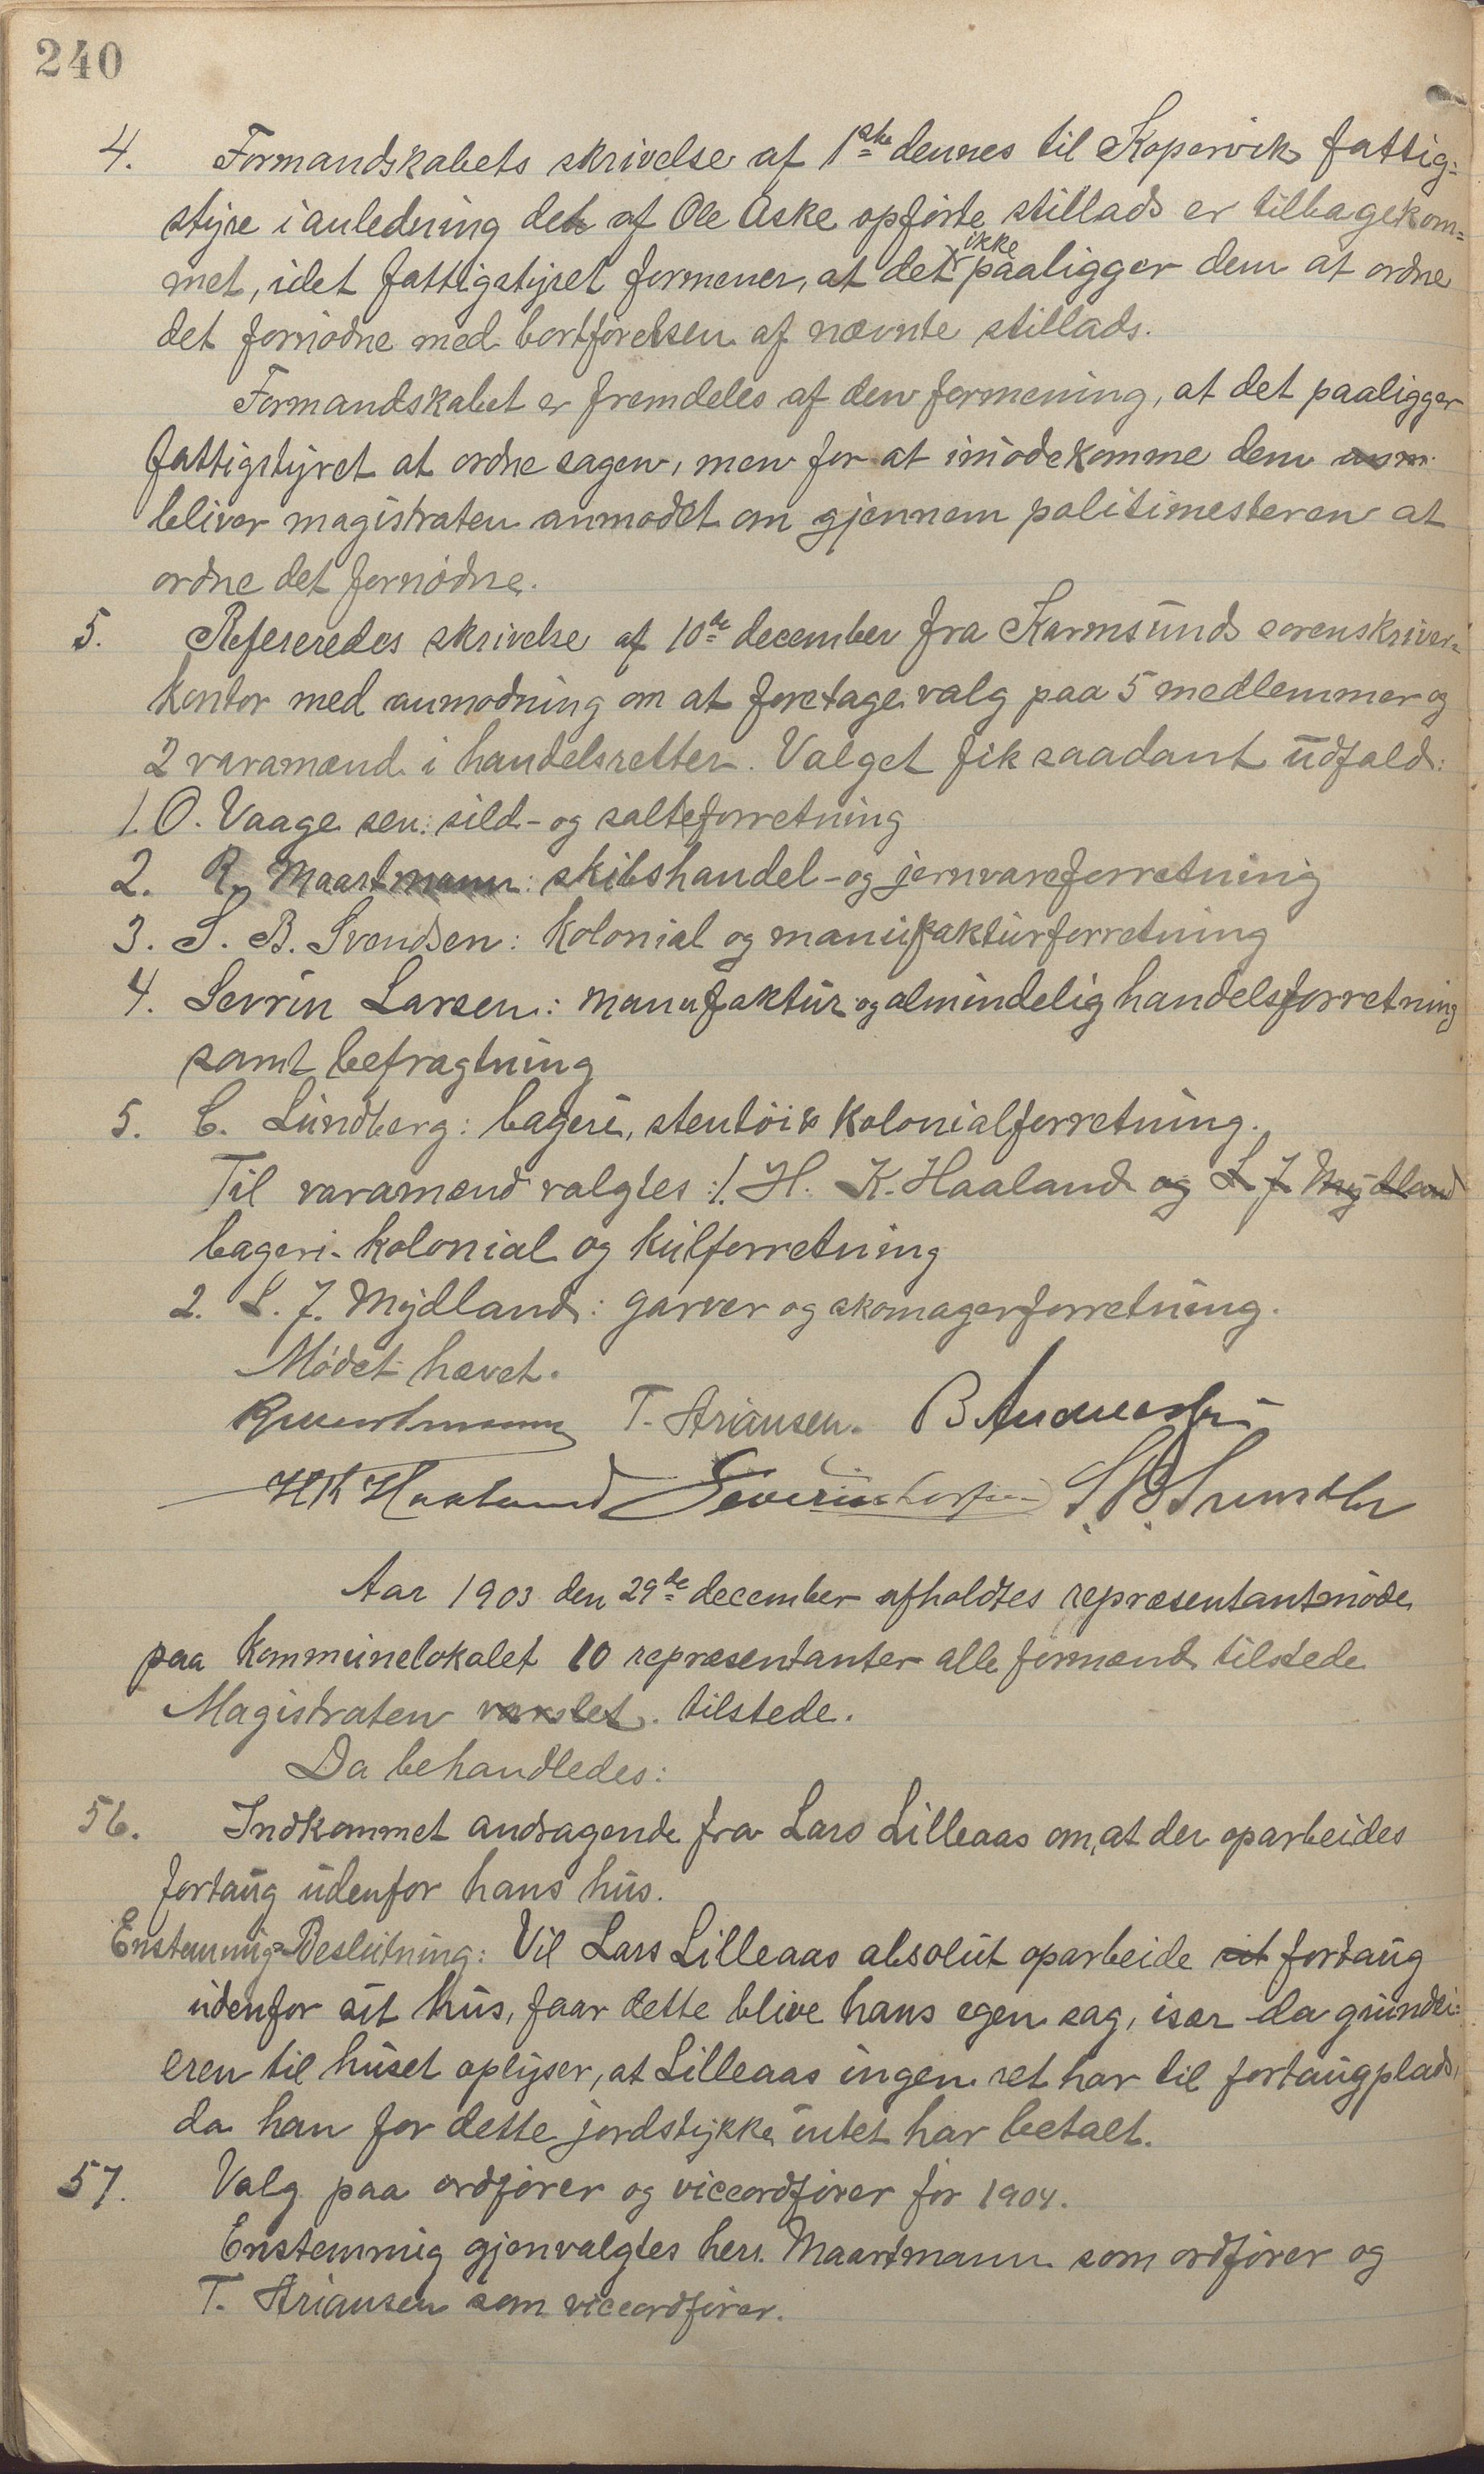 240
4. Formandskabets skrivelse af 1ste dennes til Kopervik fattig=
styre i anledning det af Ole Aske opførte stillads er tilbagekom=
met, idet fattigstyret formener, at det ikke paaligger dem at ordne
det fornødne med bortførelsen af nævnte stillads.
Formandskabet er fremdeles af den formening, at det paaligger
fattigstyret at ordne sagen, men for at imødekomme dem
bliver magistraten anmodet om gjennem politimesteren at
ordne det fornødne.
5. Refereredes skrivelse af 10de december fra Karmsund sorenskriver=
kontor med anmodning om at foretage valg paa 5 medlemmer og
2 varamænd i handelsretten. Valget fik saadant udfald:
1. O. Vaage sen: sild- og salteforretning
2. R. Maartmann: skibshandel- og jernvareforretning
3. S. B. Svendsen: kolonial og manufakturforretning
4. Sevrin Larsen: manufaktur og almindelig handelsforretning
samt befragtning
5. C. Lundberg: bageri, stentøi & kolonialforretning.
Til varamænd valgtes: 1. H. K. Haaland og L J Mydland
bageri- kolonial og kulforretning
2. L. J. Mydland: garver og skomagerforretning.
Mødet hævet.
R Maartmann T. Ariansen. B Andersen
H K Haaland Severin Larsen S. B. Svendsen
Aar 1903 den 29de december afholdtes repræsentantmøde
paa kommunelokalet 10 repræsentanter alle formænd tilstede
Magistraten varslet. tilstede.
Da behandledes:
56. Indkommet andragende fra Lars Lilleaas om, at der oparbeides
fortaug udenfor hans hus.
Enstemmig Beslutning: Vil Lars Lilleaas absolut oparbeide sit fortaug
udenfor sit hus, faar dette blive hans egen sag, især da grundei=
eren til huset oplyser, at Lilleaas ingen ret har til fortaugplads,
da han for dette jordstykke intet har betalt.
57. Valg paa ordfører og viceordfører for 1904.
Enstemmig gjenvalgtes herr. Maartmann som ordfører og
T. Ariansen som viceordfører.